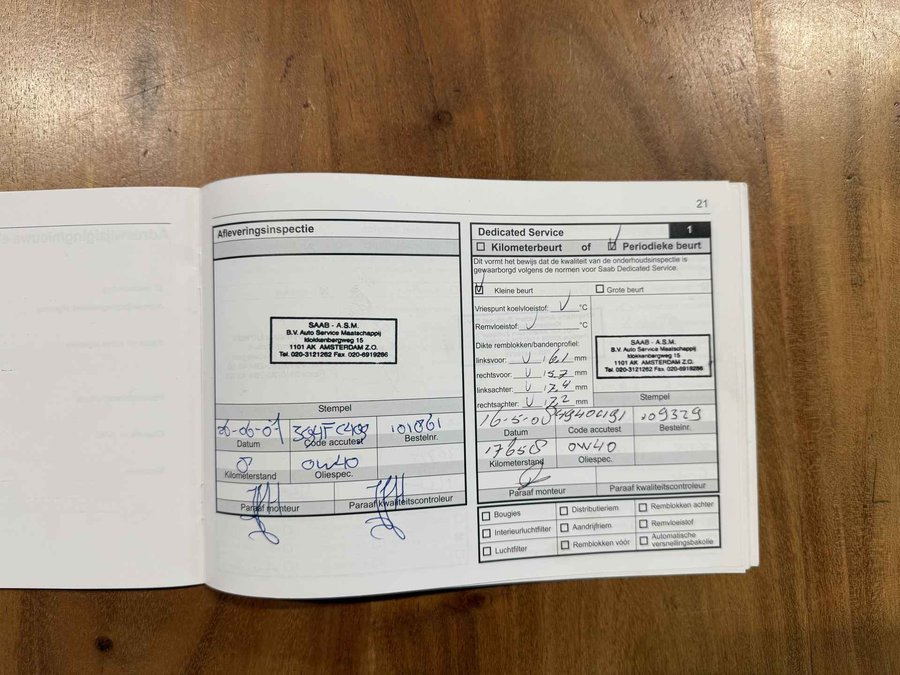 21
Afleveringsinspectie
SAAB - A.S.M.
B.V. Auto Service Maatschappij
klokkenbergweg 15
1101 AK AMSTERDAM Z.O.
Tel. 020-3121262 Fax 020-6919286
Stempel
26-06-07 101861
Datum Code accutest Bestelnr.
0W40
Kilometerstand Oliespec.
Paraaf monteur Paraaf kwaliteitscontroleur
Dedicated Service 1
Kilometerbeurt of Periodieke beurt
Dit vormt het bewijs dat de kwaliteit van de onderhoudsinspectie is
gewaarborgd volgens de normen voor Saab Dedicated Service.
Kleine beurt Grote beurt
Vriespunt koelvloeistof: °C
Remvloeistof: °C
Dikte remblokken/bandenprofiel:
linksvoor: mm
rechtsvoor: mm
linksachter: 7,4 mm
rechtsachter: 7,2 mm
SAAB - A.S.M.
B.V. Auto Service Maatschappij
klokkenbergweg 15
1101 AK AMSTERDAM Z.O.
Tel. 020-3121262 Fax 020-6919286
Stempel
16-5-08 109329
Datum Code accutest Bestelnr.
17658 0W40
Kilometerstand Oliespec.
Paraaf monteur Paraaf kwaliteitscontroleur
Bougies Distributieriem Remblokken achter
Interieurluchtfilter Aandrijfriem Remvloeistof
Luchtfilter Remblokken vóór Automatische
versnellingsbakolie